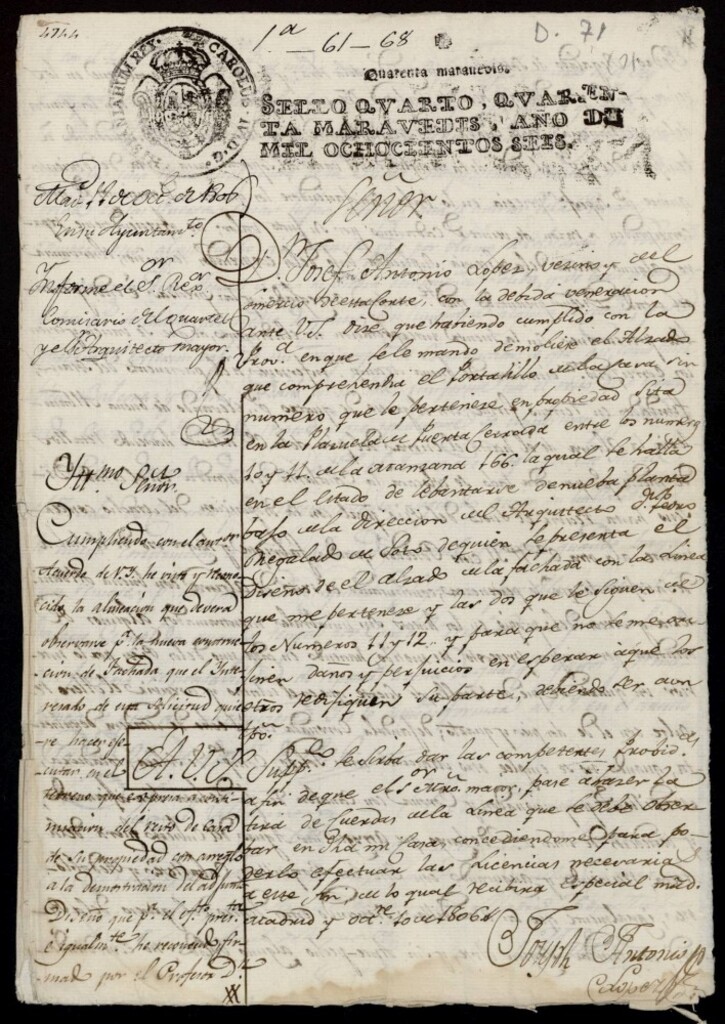 4744
1.ª - 61 - 68
D. 71
CAROLUS IV D. G. HISPANIARUM REX.
Quarenta maravedis.
SELLO QVARTO, QVAREN-
TA MARAVEDIS, AÑO DE
MIL OCHOCIENTOS SEIS.
Señor
D. Josef Antonio Lopez, vecino y del
comercio de esta Corte, con la debida veneracion
ante V.S. dice, que habiendo cumplido con la
Prov.ª en que se le mando demoliese el Alzado
que comprehendia el Portalillo de la Casa sin
numero que le pertenece en propiedad sita
en la Plazuela de Puerta Cerrada entre los numeros
10 y 11. de la manzana 166. la qual se halla
en el estado de lebantarse de nueba planta
bajo de la Direccion del Arquitecto d.n Pedro
Regalado de Soto de quien se presenta el
Diseño de el alzado de la fachada con la Linea
que me pertenece y las dos que le siguen de
los Numeros 11 y 12. y para que no se me
sigan daños y perjuicios en esperar a que los
otros redifiquen su parte, debiendo ser a un
tpo.
A. V.S. Supp.co se sirba dar las competentes Probid.s
a fin de que el S.or Mro. mayor, pase a hazer la
tira de Cuerdas de la Linea que se debe obser
bar en dha mi Casa, concediendome para po
derlo efectuar las licencias necesarias
a este fin de lo qual recibira especial mrd.
Madrid y oct.re 10 de 1806
Joseph Antonio
Lopez
Mad. de Oct. de 1806
En su Ayuntam.to
Informe el S.or Rex.or
Comisario del Quartel
y el Arquitecto mayor.
Yll.mo Señor.
Cumpliendo con el anterior
Acuerdo de V.I. he visto y reconocido
la alineacion que devera
observarse p.ª la nueva construccion
de Fachada que el Interesado
de esta solicitud quiere
hacer executar
en el
terreno que expresa a continuacion
del resto de casa
de su propiedad con arreglo
a la demostracion del adjunto
Diseño que p.r el efecto presenta
e igualm.te he reconocido firmado
por el Profesor D.n